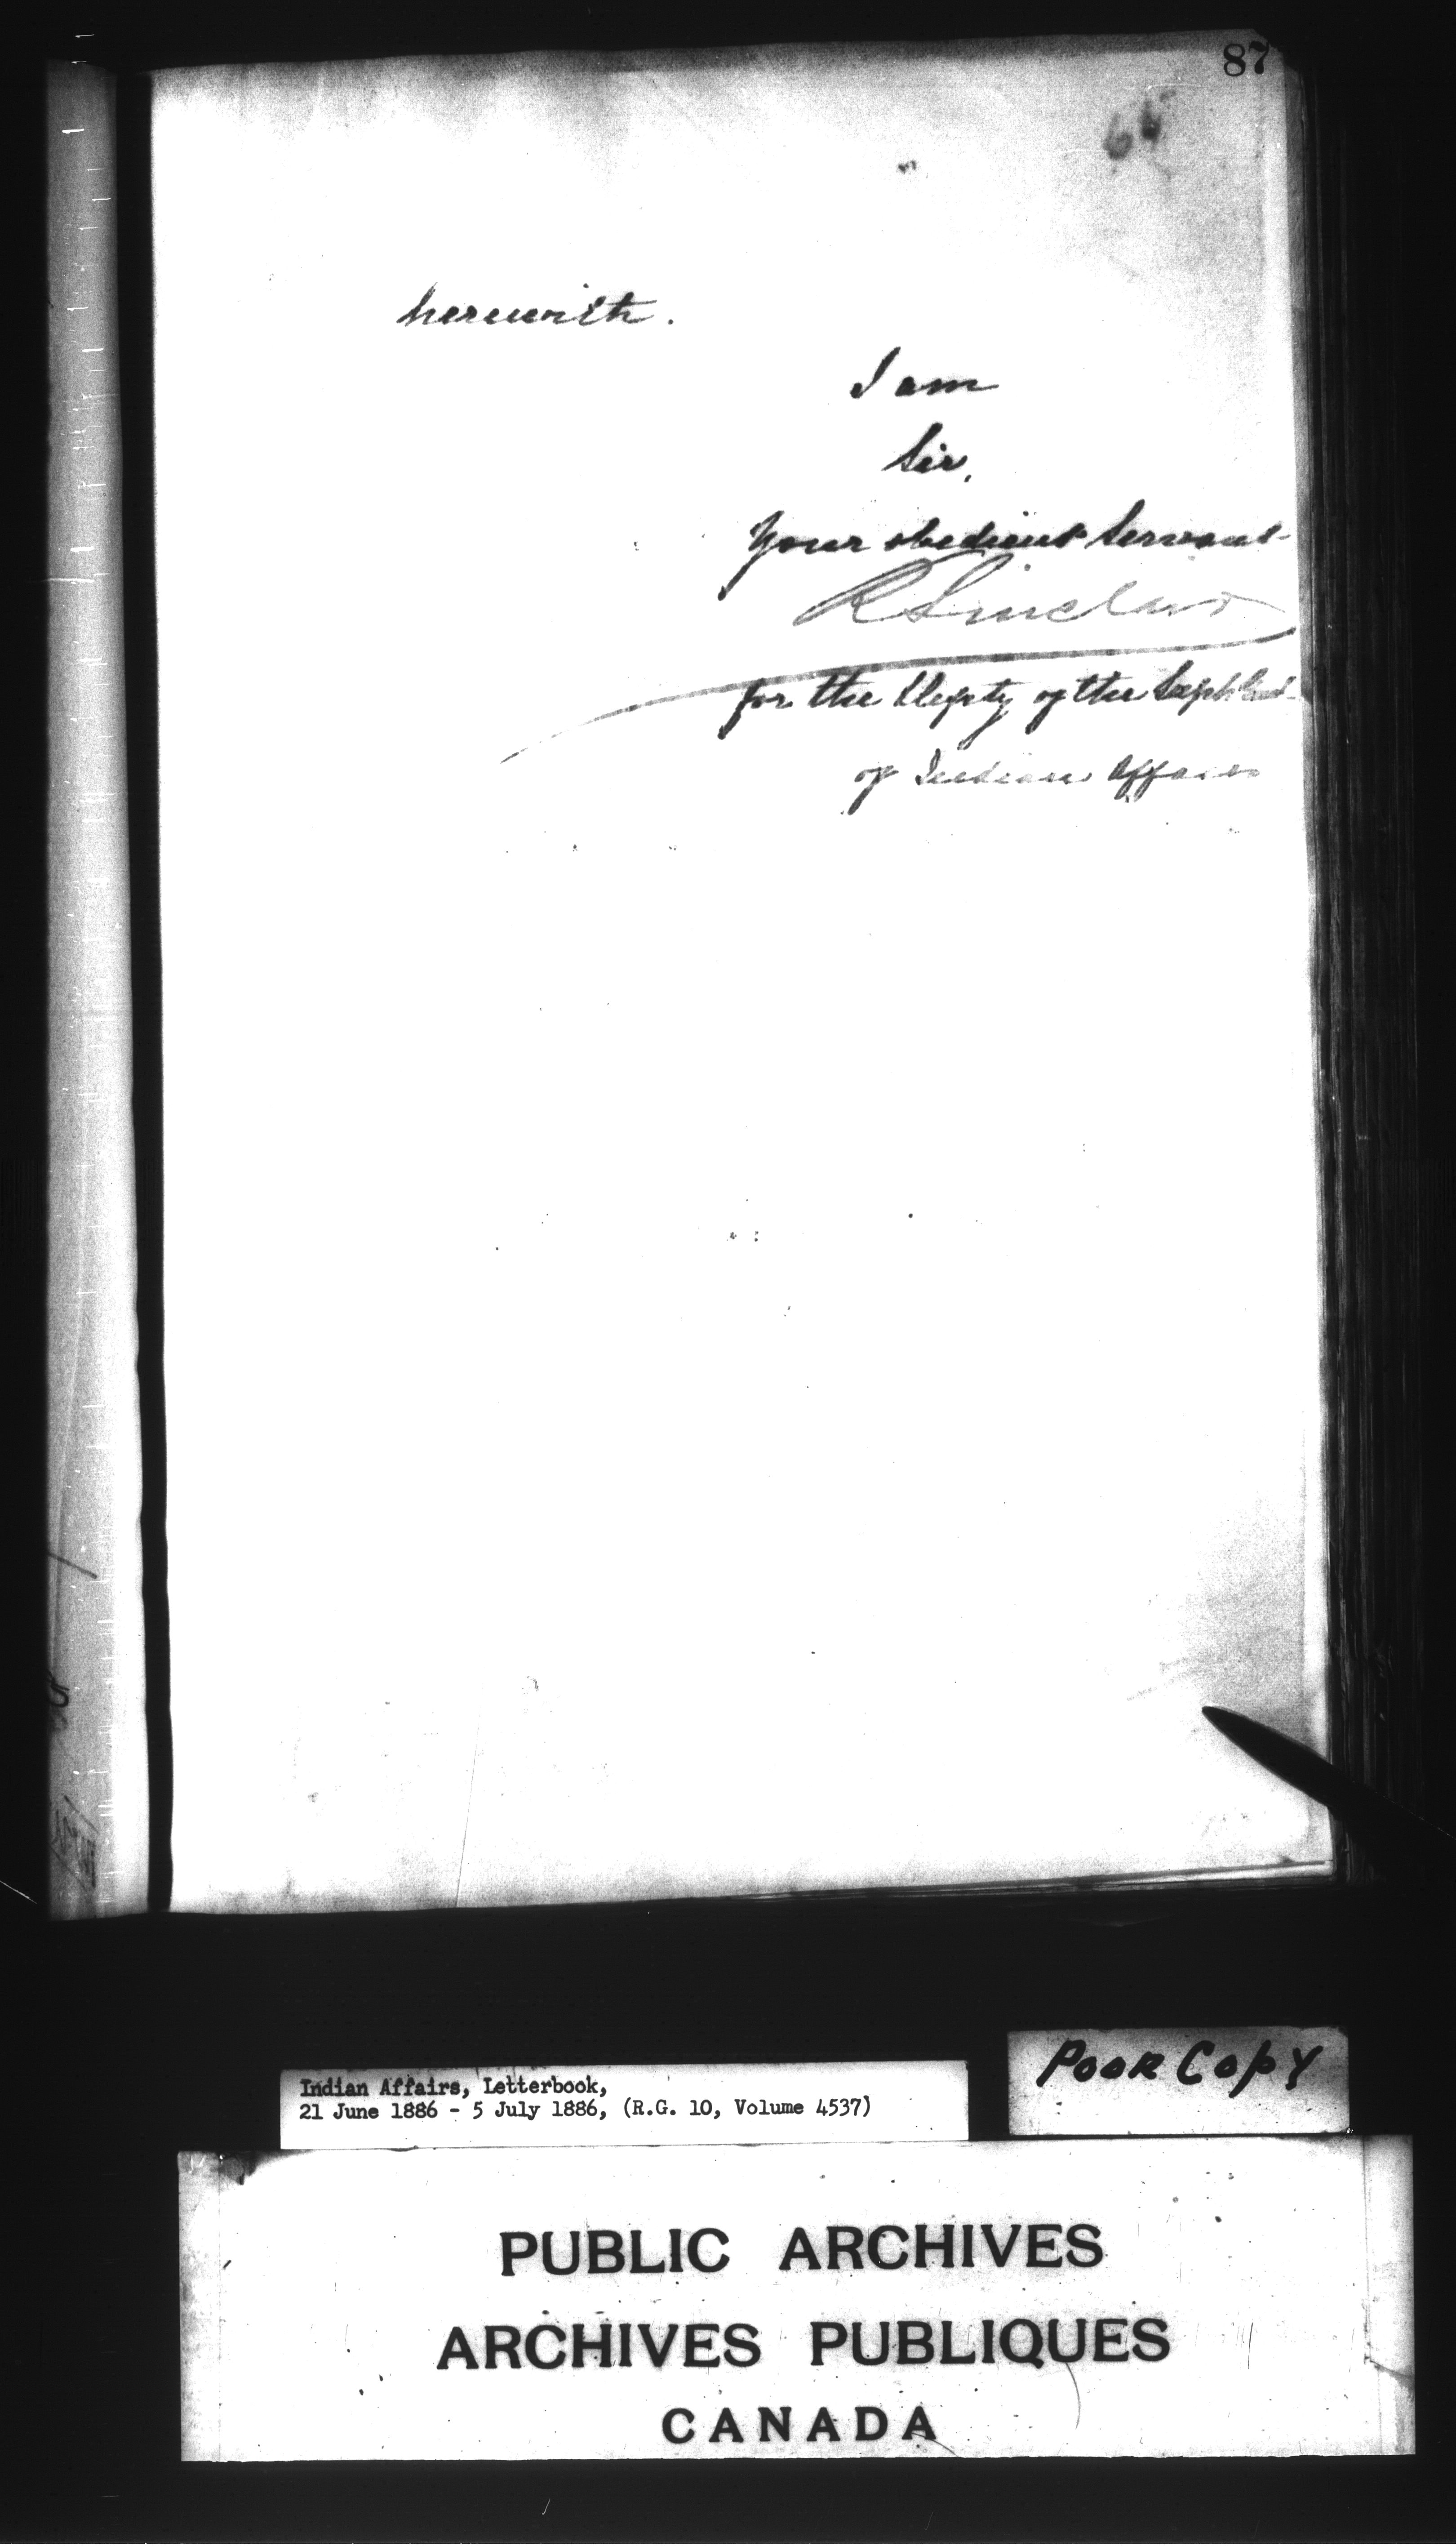 87
herewith.
I am
Sir,
Your obedient Servant
R Sinclair
for the Depty of the Supt Genl
of Indian Affairs
Poor Copy
Indian Affairs, Letterbook,
21 June 1886 - 5 July 1886, (R.G. 10, Volume 4537)
PUBLIC ARCHIVES
ARCHIVES PUBLIQUES
CANADA